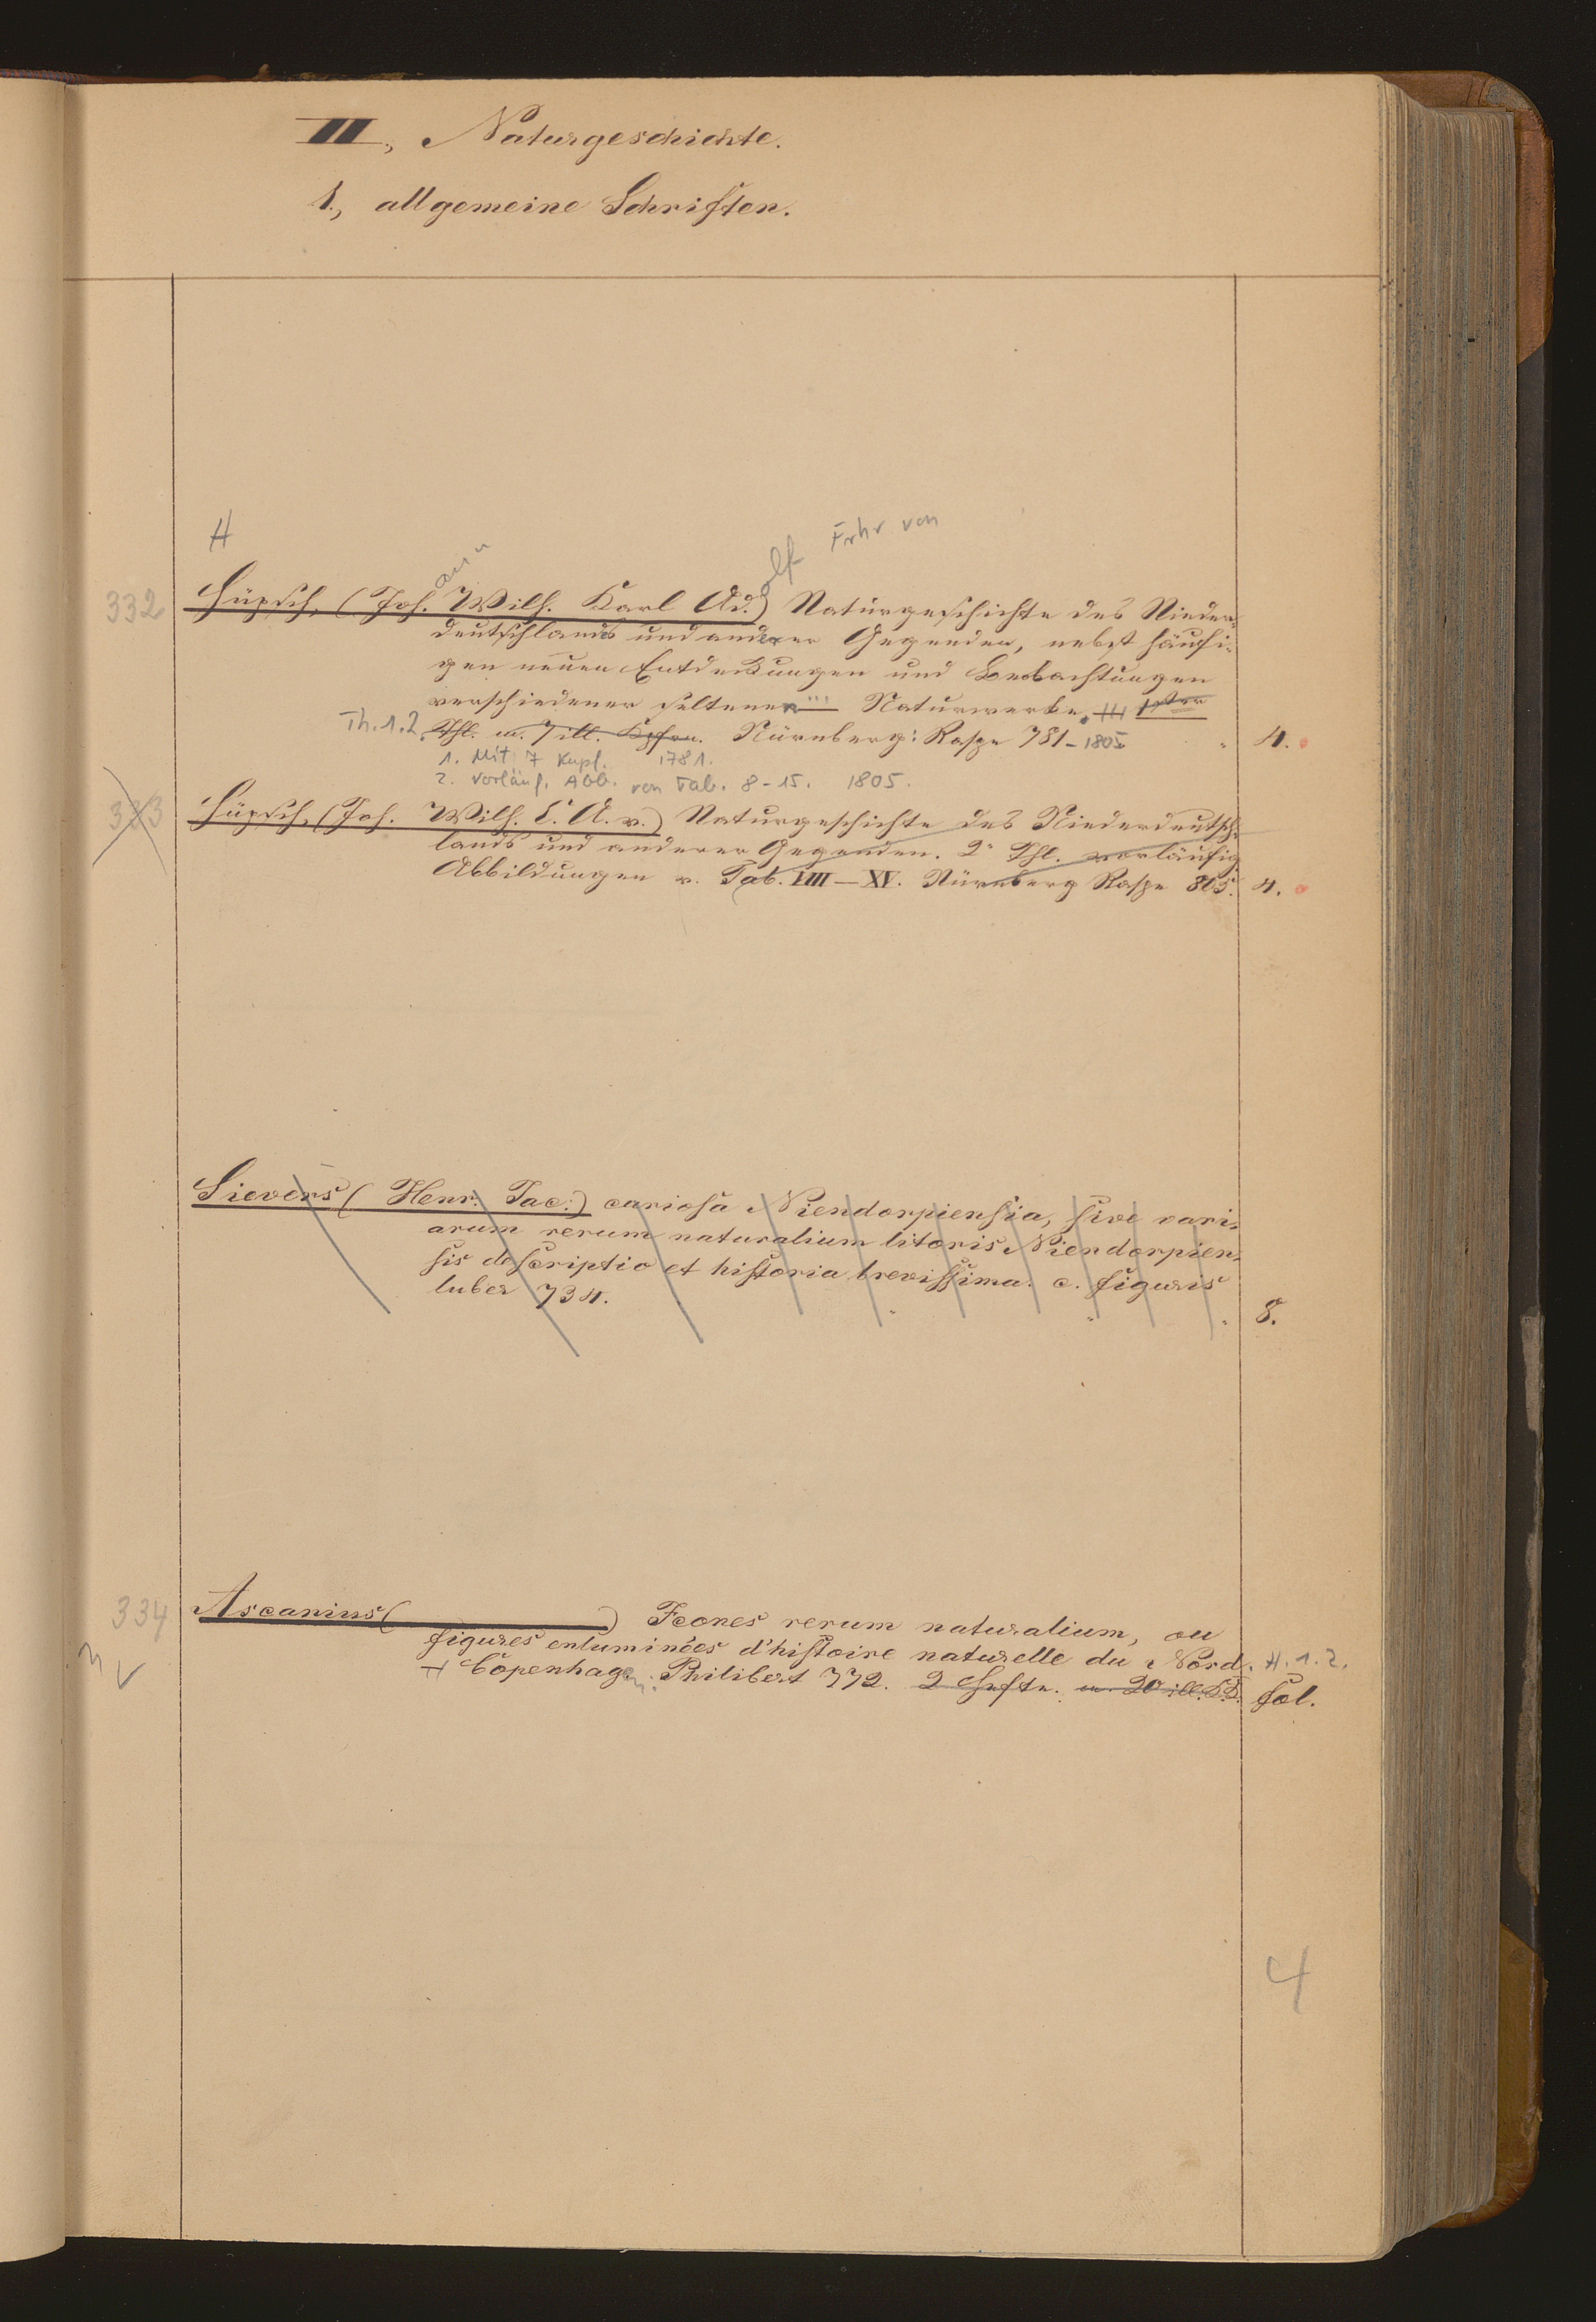 III., Naturgeschichte.
1., allgemeine Schriften.
H
ann
olf
Frhr von
332
Hüpsch, (Joh. Wilh. Karl Ad.) Naturgeschichte des Nieder-
deutschlands und anderer Gegenden, nebst häufi-
gen neuen Entdeckungen und Beobachtungen
verschiedener seltenen Naturwerke. 1ster
Th. 1.2. Thl. m. 7 ill. Kpfrn. Nürnberg: Raspe 781-1805 4.
1. Mit 7 Kupf. 1781.
2. Vorläuf. Abb. von Tab. 8-15. 1805.
333
Hüpsch, (Joh. Wilh. C. A. v.) Naturgeschichte des Niederdeutsch-
lands und anderer Gegenden. 2r Thl. vorläufig
Abbildungen v. Tab. VIII—XV. Nürnberg Raspe 805. 4.
Sievers (Henr. Jac.) curiosa Niendorpiensia, sive vari-
arum rerum naturalium litoris Niendorpien-
sis descriptio et historia brevissima. c. figuris
lubec 734. 8.
334
Ascanius ( ) Icones rerum naturalium, ou
figures enluminées d'histoire naturelle du Nord. H. 1.2.
Copenhagen: Philibert 772. 2 Hefte. m. 20 ill. KK. fol.
n V
4